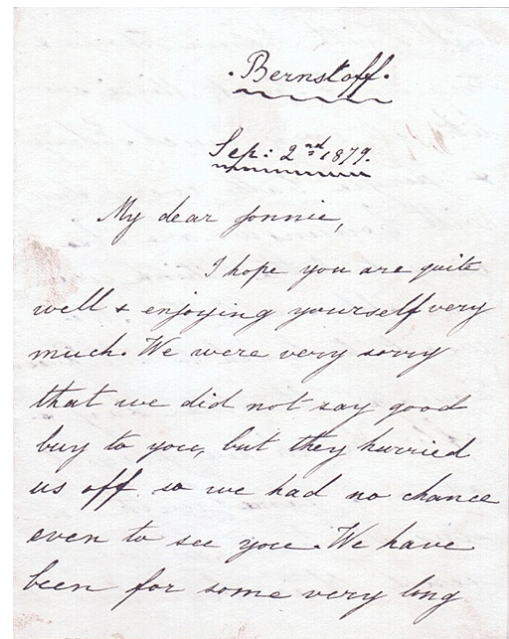 . Bernstoff.
Sep: 2nd 1879.
My dear Jonnie,
I hope you are quite
well & enjoying yourself very
much. We were very sorry
that we did not say good
buy to you, but they hurried
us off so we had no chance
even to see you. We have
been for some very long